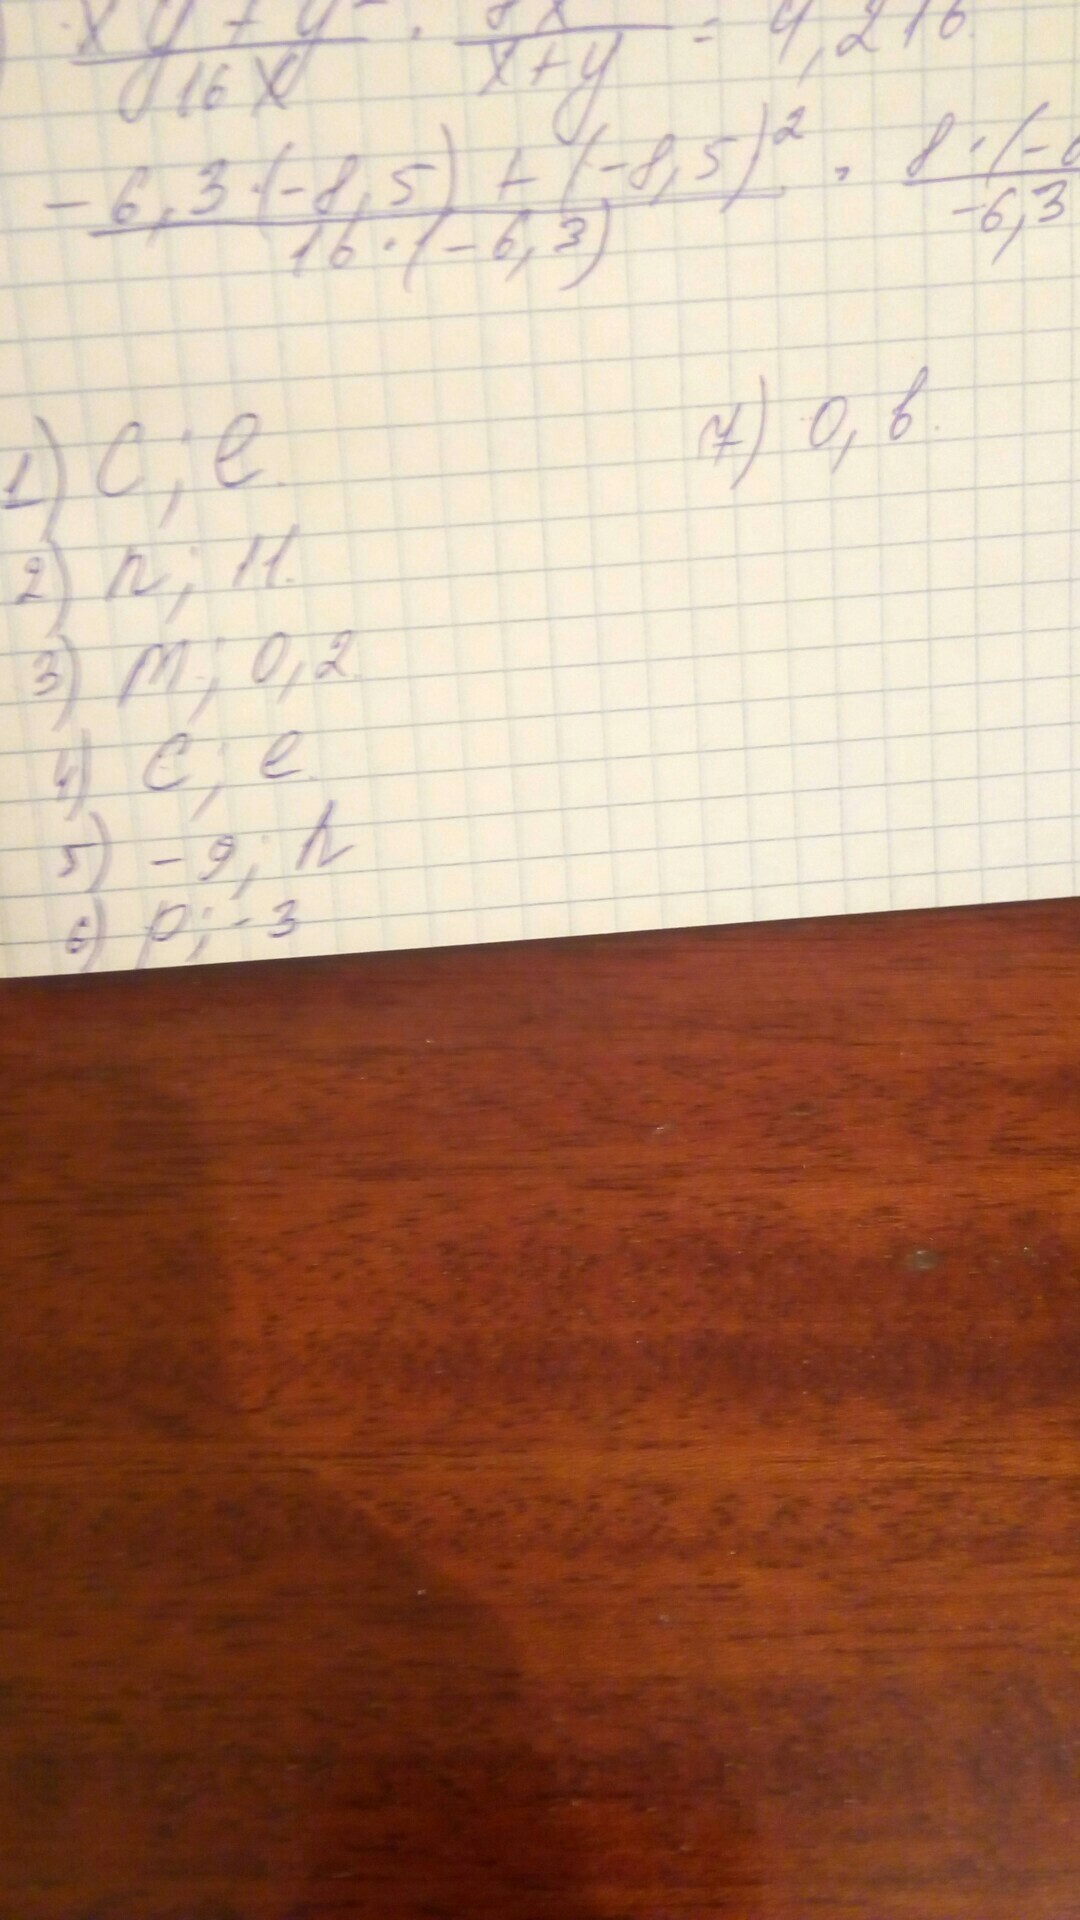 xy + y² / 16x · 8x / x+y = 4,216
-6,3·(-8,5) + (-8,5)² / 16·(-6,3) · 8·(-6 / -6,3
1) c; e.
2) n; 11.
3) m; 0,2.
4) c; e.
5) -9; h
6) p; -3
7) 0, b.